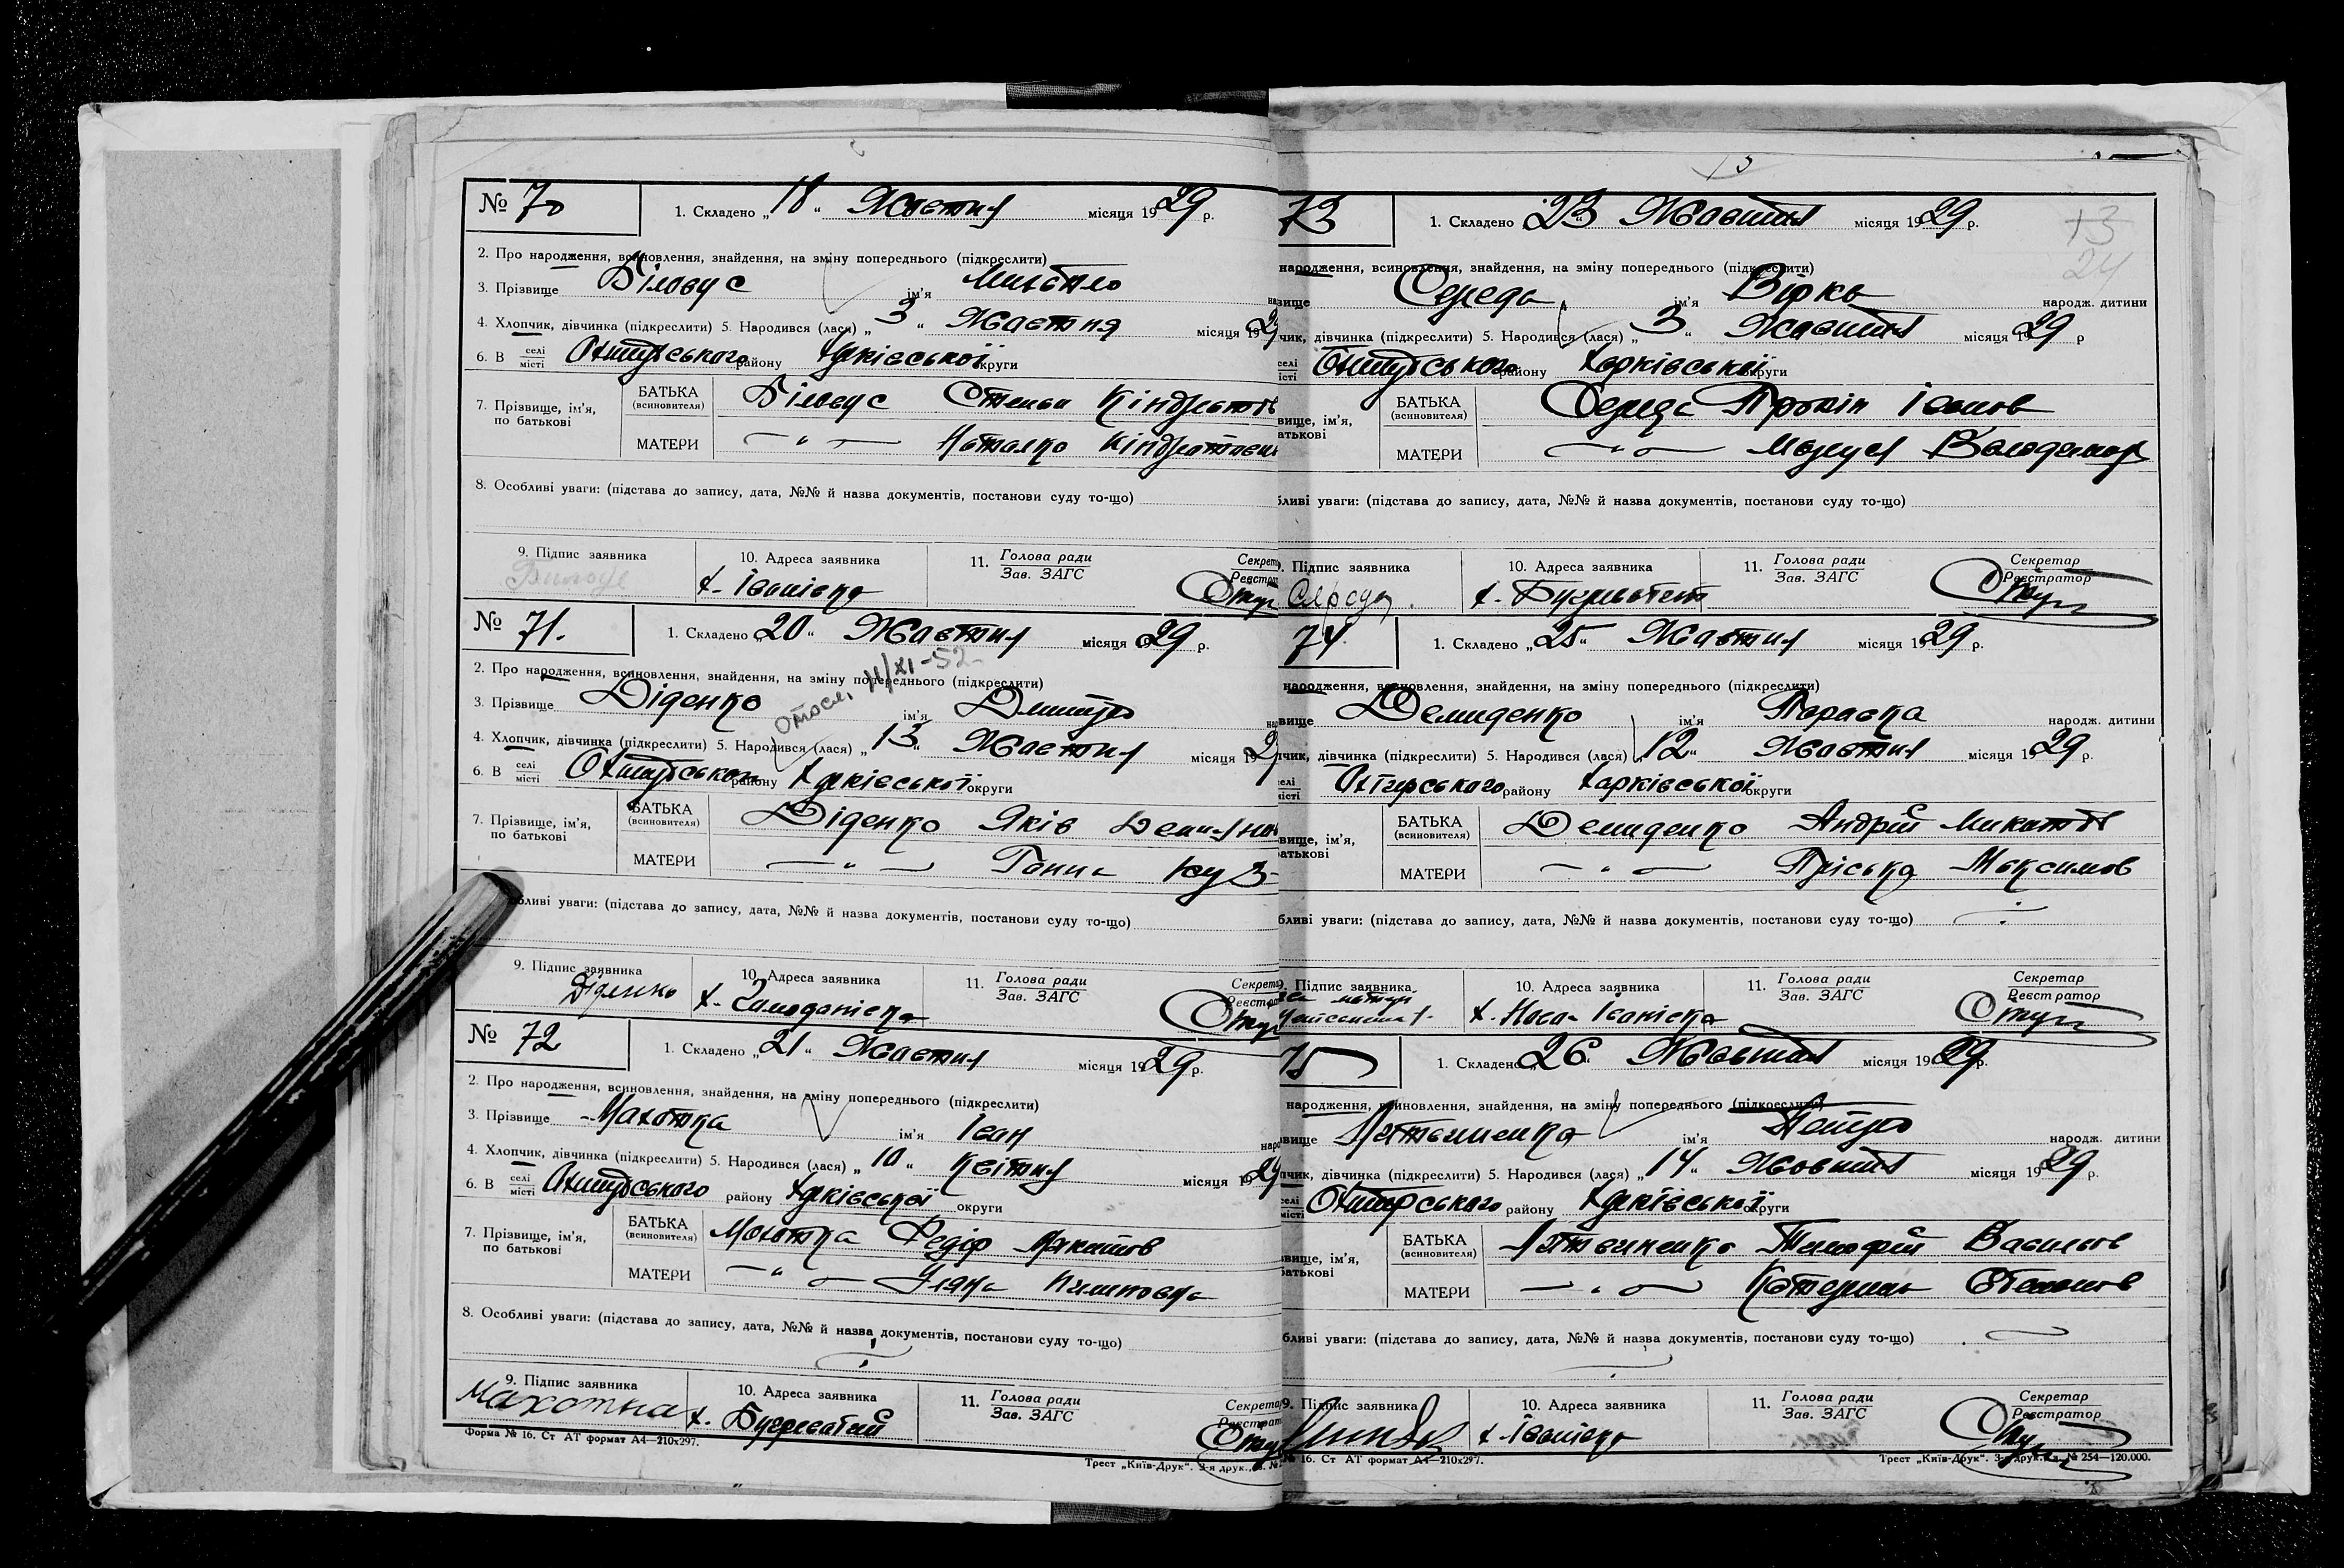 № 70
1. Складено „18“ Жовтня місяця 1929 р.
2. Про народження, всиновлення, знайдення, на зміну попереднього (підкреслити)
3. Прізвище Біловус ім'я Михайло
4. Хлопчик, дівчинка (підкреслити) 5. Народився (лася) „3“ Жовтня місяця 192
6. В селі місті Охтирського району Харківської округи
7. Прізвище, ім'я, по батькові
БАТЬКА (всиновителя) Біловус Степан Кіндратов
МАТЕРИ —„— Наталка Кіндратовн
8. Особливі уваги: (підстава до запису, дата, №№ й назва документів, постанови суду то-що)
9. Підпис заявника 10. Адреса заявника 11. Голова ради Зав. ЗАГС
х. Іванівка
№ 71.
1. Складено „20“ Жовтня місяця 1929 р.
2. Про народження, всиновлення, знайдення, на зміну попереднього (підкреслити)
11/XI-52
3. Прізвище Діденко ім'я Дмитро
4. Хлопчик, дівчинка (підкреслити) 5. Народився (лася) „13“ Жовтня місяця 192
6. В селі місті Охтирського району Харківської округи
7. Прізвище, ім'я, по батькові
БАТЬКА (всиновителя) Діденко Яків
МАТЕРИ —„— Ганна
бливі уваги: (підстава до запису, дата, №№ й назва документів, постанови суду то-що)
9. Підпис заявника 10. Адреса заявника 11. Голова ради Зав. ЗАГС
Діденко х.
№ 72
1. Складено „21“ Жовтня місяця 1929 р.
2. Про народження, всиновлення, знайдення, на зміну попереднього (підкреслити)
3. Прізвище Махотка ім'я Іван
4. Хлопчик, дівчинка (підкреслити) 5. Народився (лася) „10“ Квітня місяця 1929
6. В селі місті Охтирського району Харківської округи
7. Прізвище, ім'я, по батькові
БАТЬКА (всиновителя) Махотка Федір
МАТЕРИ —„— Уляна
8. Особливі уваги: (підстава до запису, дата, №№ й назва документів, постанови суду то-що)
9. Підпис заявника 10. Адреса заявника 11. Голова ради Зав. ЗАГС
Махотка х. Бугреватий
Форма № 16. Ст АТ формат А4—210х297.
Трест „Київ-Друк“. 3-я друк.
73
1. Складено „23“ Жовтня місяця 1929 р.
13
24
народження, всиновлення, знайдення, на зміну попереднього (підкреслити)
вище Середа ім'я Вірка народж. дитини
чик, дівчинка (підкреслити) 5. Народився (лася) „3“ Жовтня місяця 1929 р
селі місті Охтирського району Харківської округи
вище, ім'я, атькові
БАТЬКА (всиновителя) Середа Прокіп Іванов
МАТЕРИ —„— Маруся Володимир
бливі уваги: (підстава до запису, дата, №№ й назва документів, постанови суду то-що)
Підпис заявника 10. Адреса заявника 11. Голова ради Зав. ЗАГС Секретар Реєстратор
Середа. х.
74.
1. Складено „25“ Жовтня місяця 1929 р.
народження, всиновлення, знайдення, на зміну попереднього (підкреслити)
вище Демиденко ім'я Параска народж. дитини
чик, дівчинка (підкреслити) 5. Народився (лася) „12“ Жовтня місяця 1929 р.
селі місті Охтирського району Харківської округи
вище, ім'я, атькові
БАТЬКА (всиновителя) Демиденко Андрій Микитов
МАТЕРИ —„— Пріська Максимов
бливі уваги: (підстава до запису, дата, №№ й назва документів, постанови суду то-що)
Підпис заявника 10. Адреса заявника 11. Голова ради Зав. ЗАГС Секретар Реєстратор
х. Ново-Іванівка
75
1. Складено „26“ Жовтня місяця 1929 р.
народження, всиновлення, знайдення, на зміну попереднього (підкреслити)
вище Литвиненко ім'я Петро народж. дитини
чик, дівчинка (підкреслити) 5. Народився (лася) „14“ Жовтня місяця 1929 р.
селі місті Охтирського району Харківської округи
вище, ім'я, атькові
БАТЬКА (всиновителя) Литвиненко Тимофій Васильов
МАТЕРИ —„— Катерина
бливі уваги: (підстава до запису, дата, №№ й назва документів, постанови суду то-що)
9. Підпис заявника 10. Адреса заявника 11. Голова ради Зав. ЗАГС Секретар Реєстратор
х. Іванівка
№ 16. Ст АТ формат А4—210х297.
Трест „Київ-Друк“. 3-я друк. Зд. № 254—120.000.